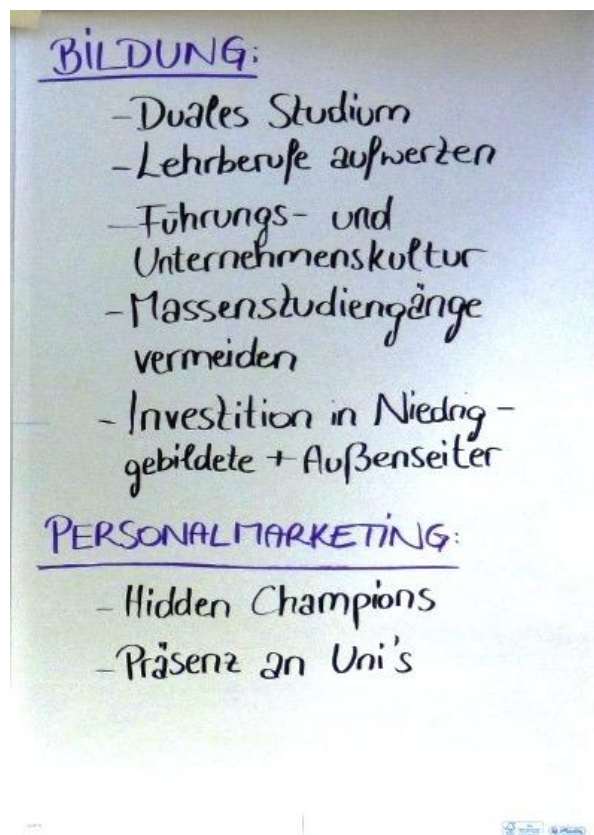 BILDUNG:
- Duales Studium
- Lehrberufe aufwerten
- Führungs- und
Unternehmenskultur
- Massenstudiengänge
vermeiden
- Investition in Niedrig-
gebildete + Außenseiter
PERSONALMARKETING:
- Hidden Champions
- Präsenz an Uni's